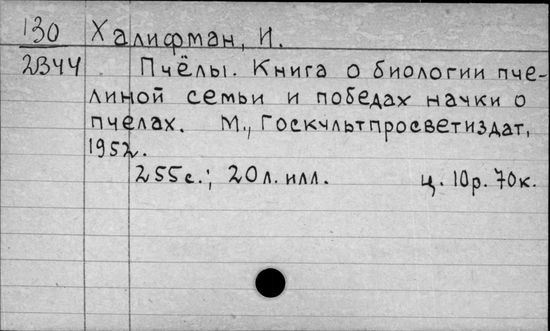 130 Халифман, И.
2В44 Пчёлы. Книга о биологии пче-
линой семьи и победах науки о
пчелах. М., Госкультпросветиздат,
1952.
255с.; 20л. илл. ц. 10р. 70к.